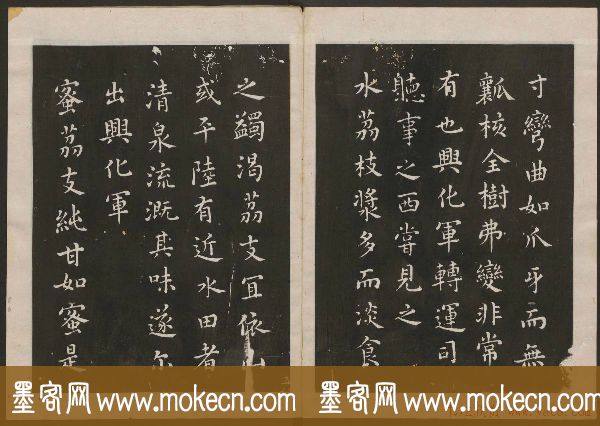 寸彎曲如爪牙而無
瓤核全樹弗變非常
有也興化軍轉運司
聽事之西嘗見之
水荔枝漿多而淡食
之蠲渴荔支宜依山
或平陸有近水田者
清泉流溉其味遂尔
出興化軍
蜜荔支純甘如蜜是
墨客网 www.mokecn.com 墨客网 www.mokecn.com